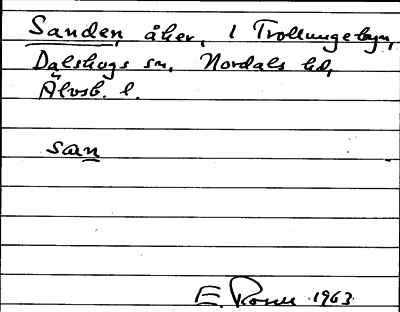 Sanden, åker, 1 Trollungebyn,
Dalskogs sn, Nordals hd,
Älvsb. l.
san
E. Rosell 1963